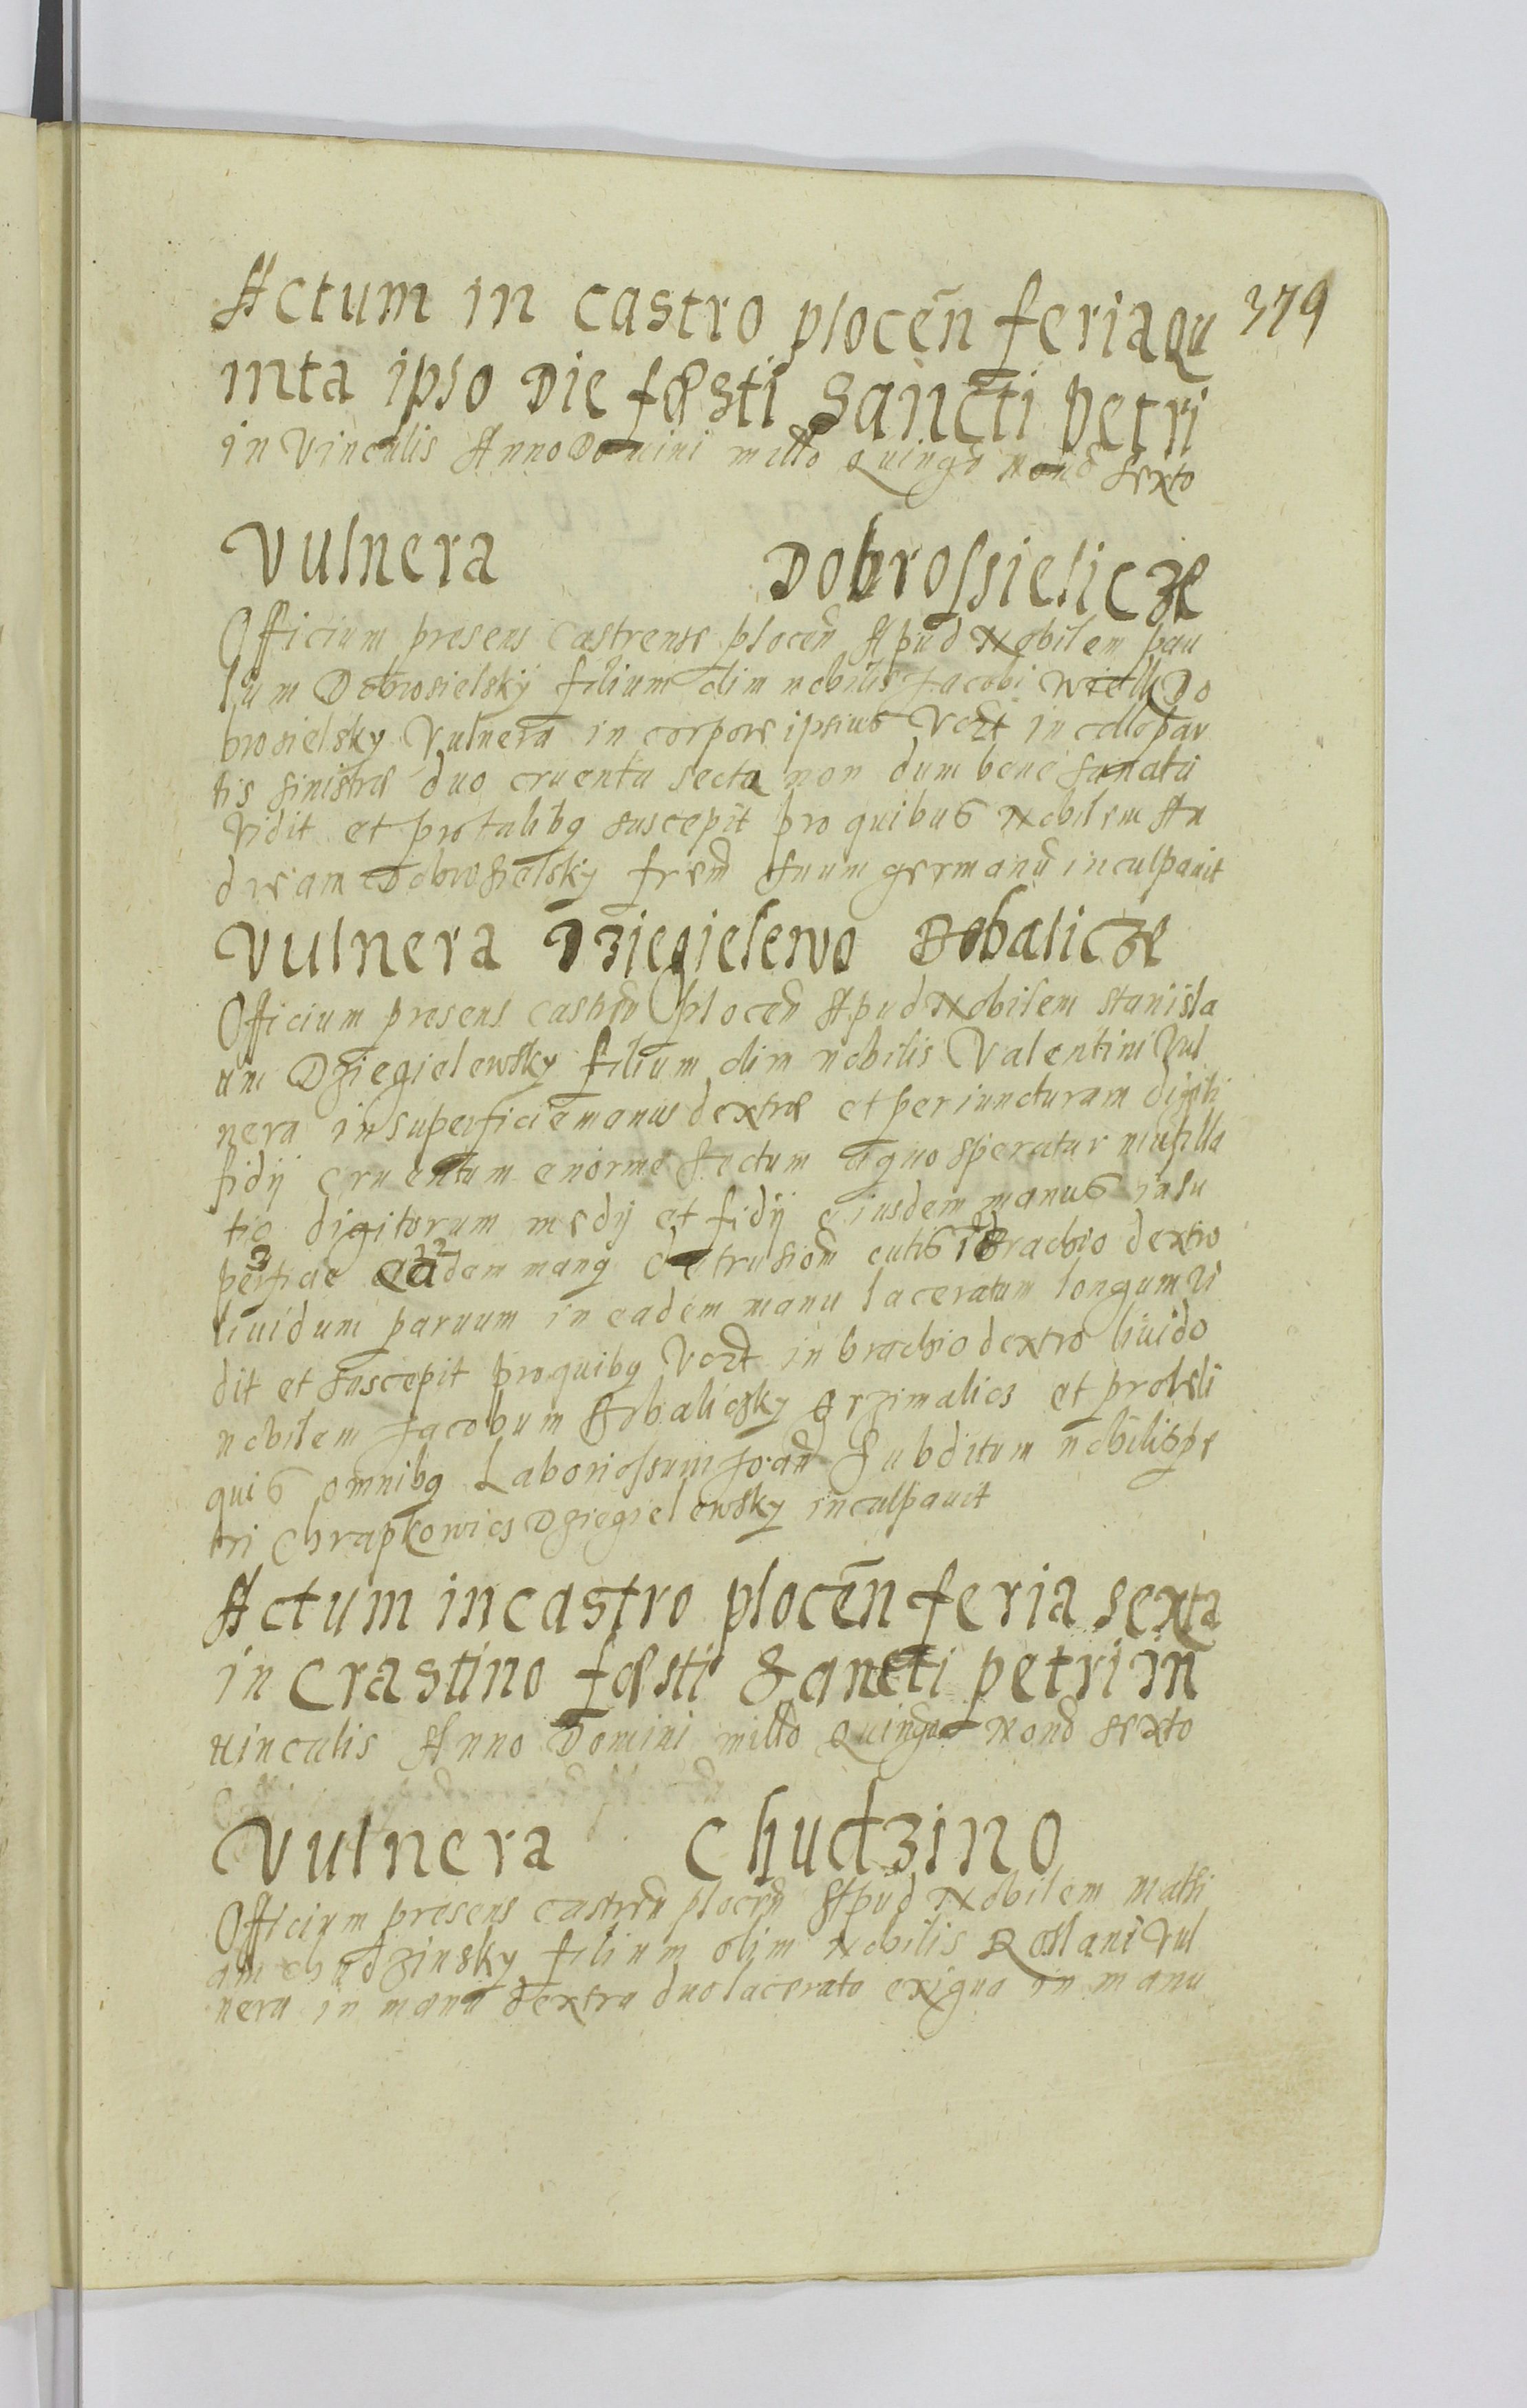 Actum in castro plocen̄ feria qu 379
inta ipso Die fæsti Sancti petri
in Vinculis Anno Domini millo Quingo Nono sexto
Vulnera Dobrossielicze
Officium presens Castrense plocen̄ Apud Nobilem pau
lum Dobrosielsky filium olim nobilis Jacobi Do
brosielsky Vulnera in corpore ipsius Vczt in collo par
tis sinistræ duo cruenta secta non dum bene sanata
Vidit et pro talibq suscepit pro quibus Nobilem An
dream Dobrosielsky frem̄ suum germanū inculpauit
Vulnera Dziegielewo Bobalicze
Officium presens castren̄ plocen̄ Apud Nobilem Stanisla
um Dziegielewsky filium olim nobilis Valentini Vul
nera in superficie manus dextræ et per iuncturam digiti
fidij cruentum enorme sectum a quo speratur mutilla
tio digitorum medij et fidij eiusdem manus in su
perficie dam manq detrusiom cutis brachio dextro
liuidum paruum in eadem manu laceratum longum Vi
dit et suscepit pro quibq Vczt in brachio dextro liuido
nobilem Jacobum Grzimalics et pro reli
quis omnibq Laboriossum Joan̄ Subditum nobilis pe
tri Chrapkowics Dziegielewsky inculpauit
Actum in castro plocen̄ feria sexta
in Crastino fæsti Sancti petri in
uinculis Anno Domini millo Quingo Nono sexto
Vulnera Chudzino
Officium presens castren̄ plocen̄ Apud Nobilem Mathi
am Chudzinsky filium olim Nobilis Roslani Vul
nera in manu dextra duo lacerata exigua in manu